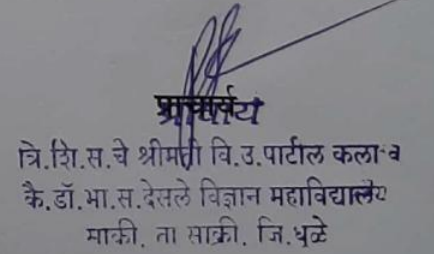 प्राचार्य
त्रि.शि.स.चे श्रीमती वि.उ.पाटील कला व
कै.डॉ.भा.स.देसले विज्ञान महाविद्यालय
साक्री. ता साक्री. जि.धुळे